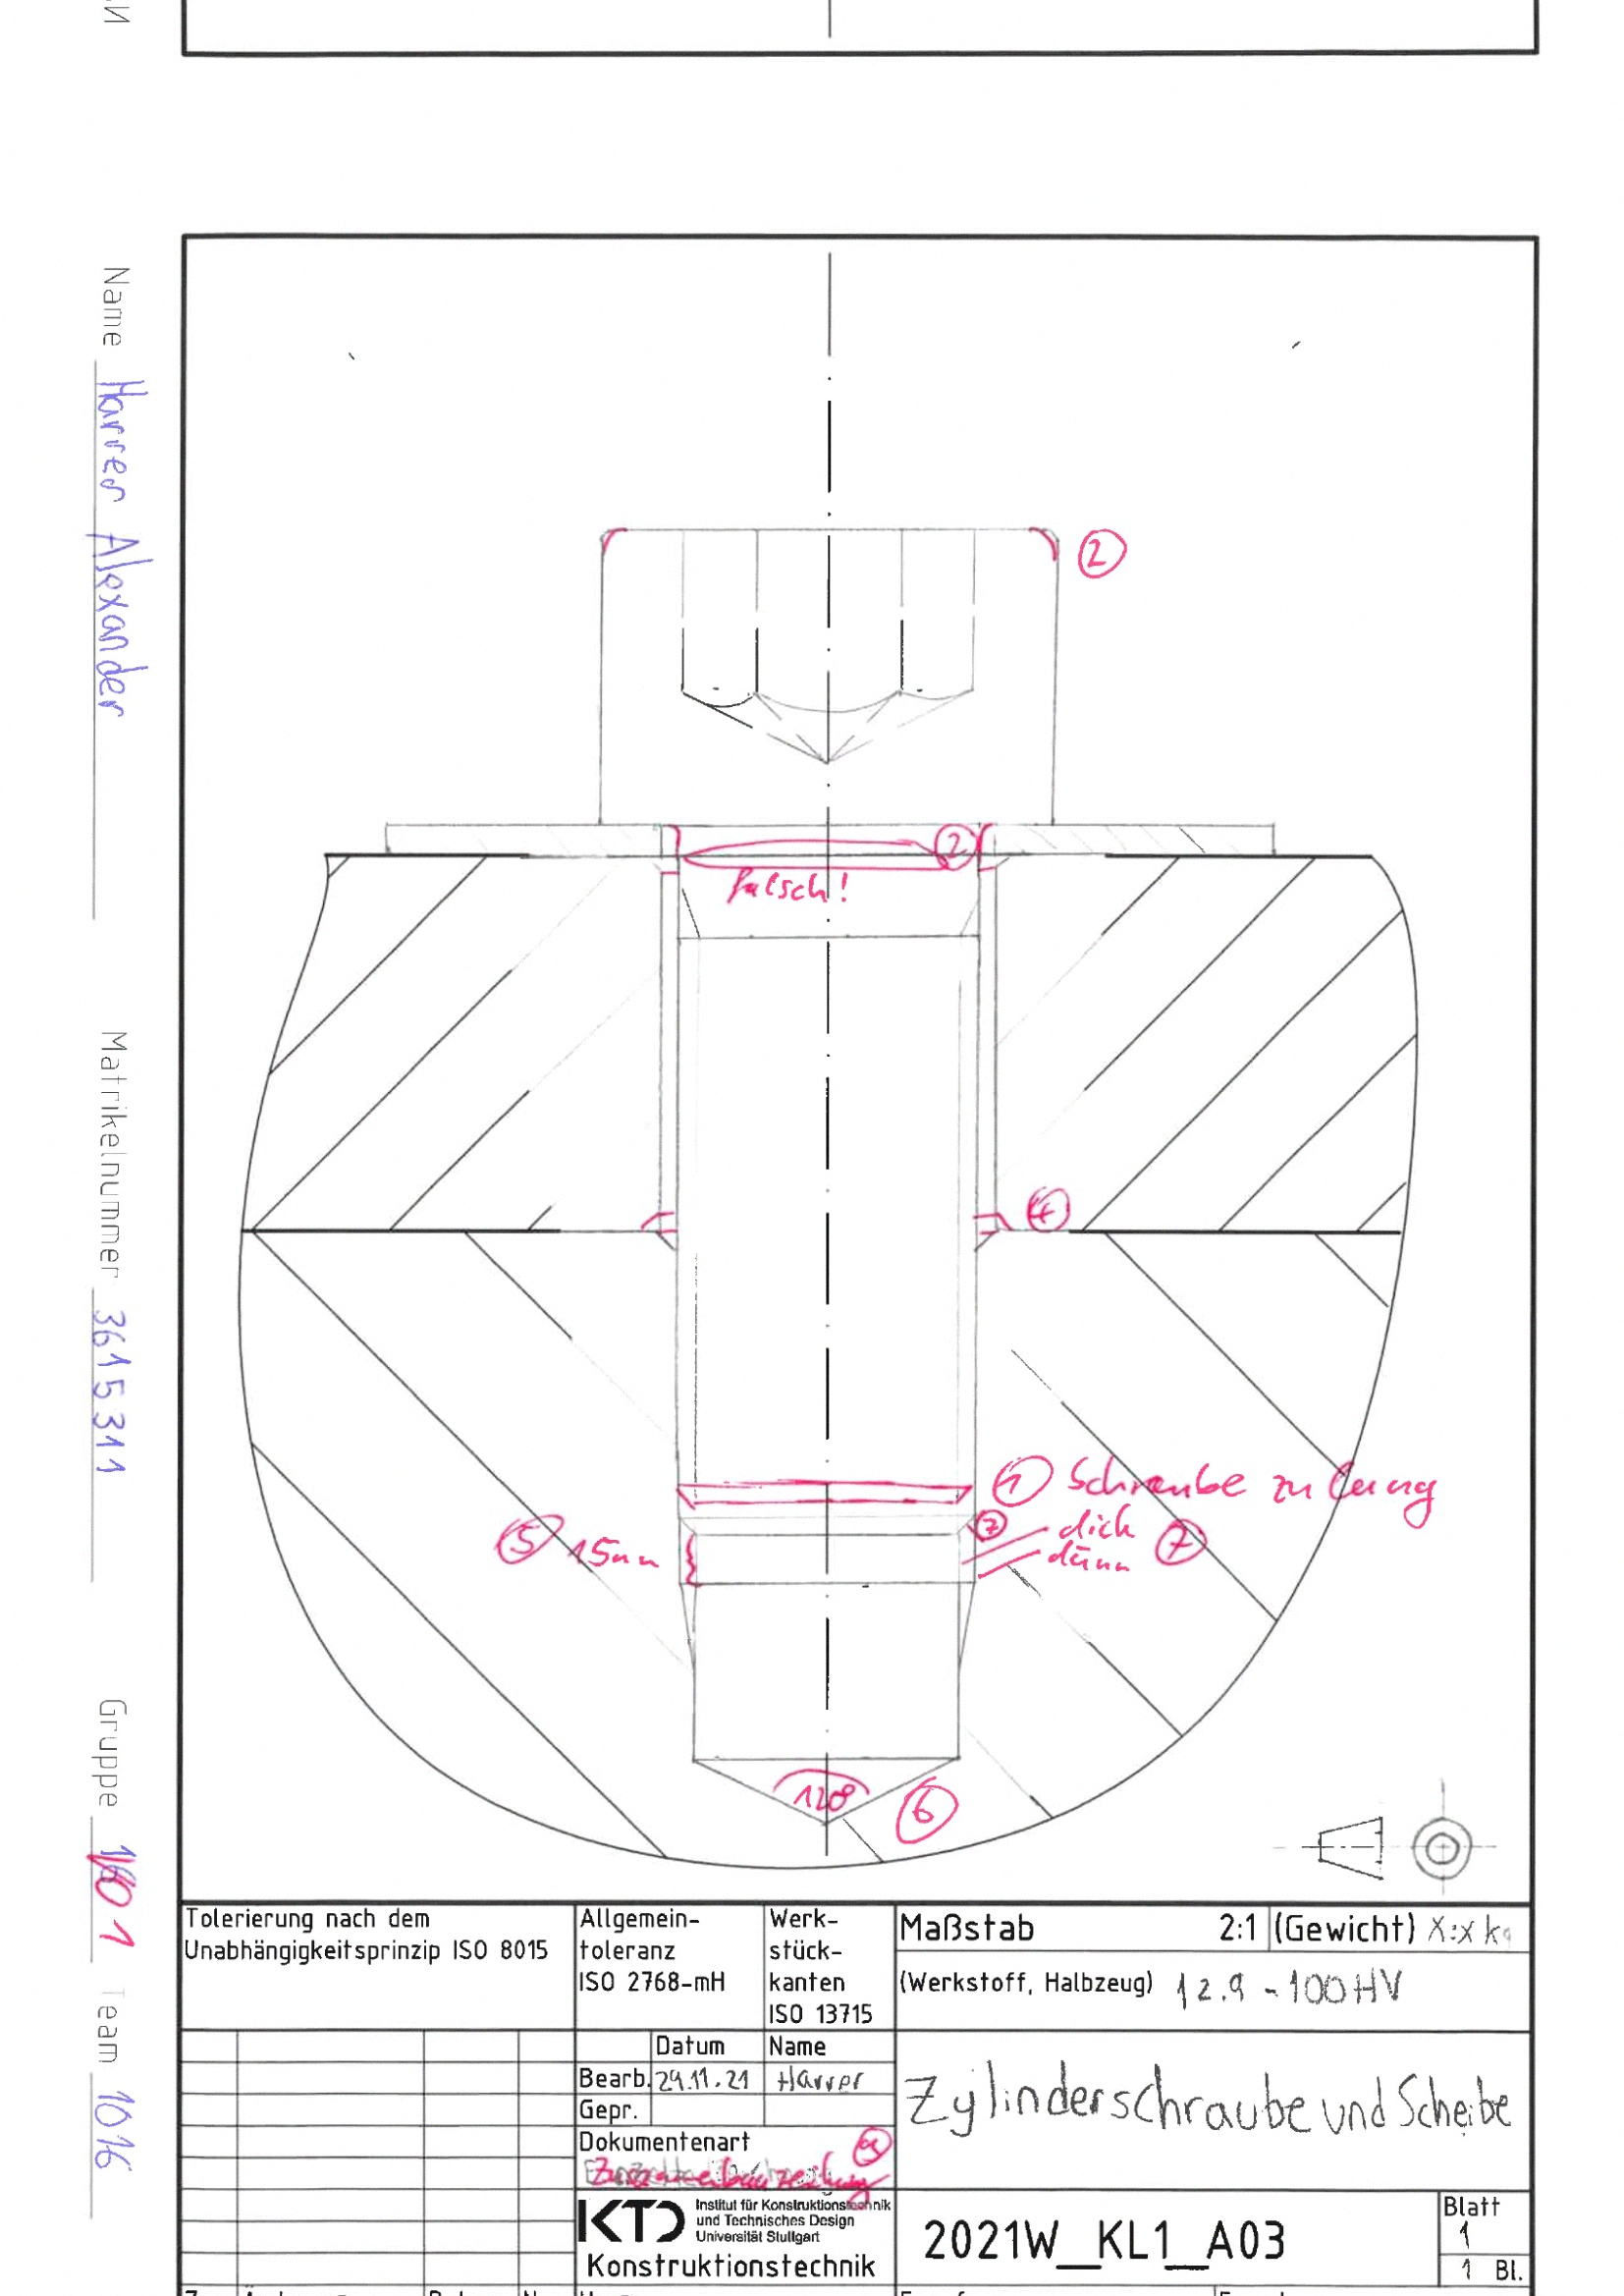 Name Harrer Alexander
Matrikelnummer 3615311
Gruppe 1601
Team 1016
2
2
falsch!
4
1 Schraube zu lang
7 dick
dünn 7
5 15mm
120° 6
Tolerierung nach dem
Unabhängigkeitsprinzip ISO 8015
Allgemein-
toleranz
ISO 2768-mH
Werk-
stück-
kanten
ISO 13715
Maßstab 2:1 (Gewicht) X:x kg
(Werkstoff, Halbzeug) 12.9 - 100HV
Datum Name
Bearb. 29.11.21 Harrer
Gepr.
Zylinderschraube und Scheibe
Dokumentenart
KTD Institut für Konstruktionstechnik
und Technisches Design
Universität Stuttgart
Konstruktionstechnik
2021W_KL1_A03
Blatt
1
1 Bl.